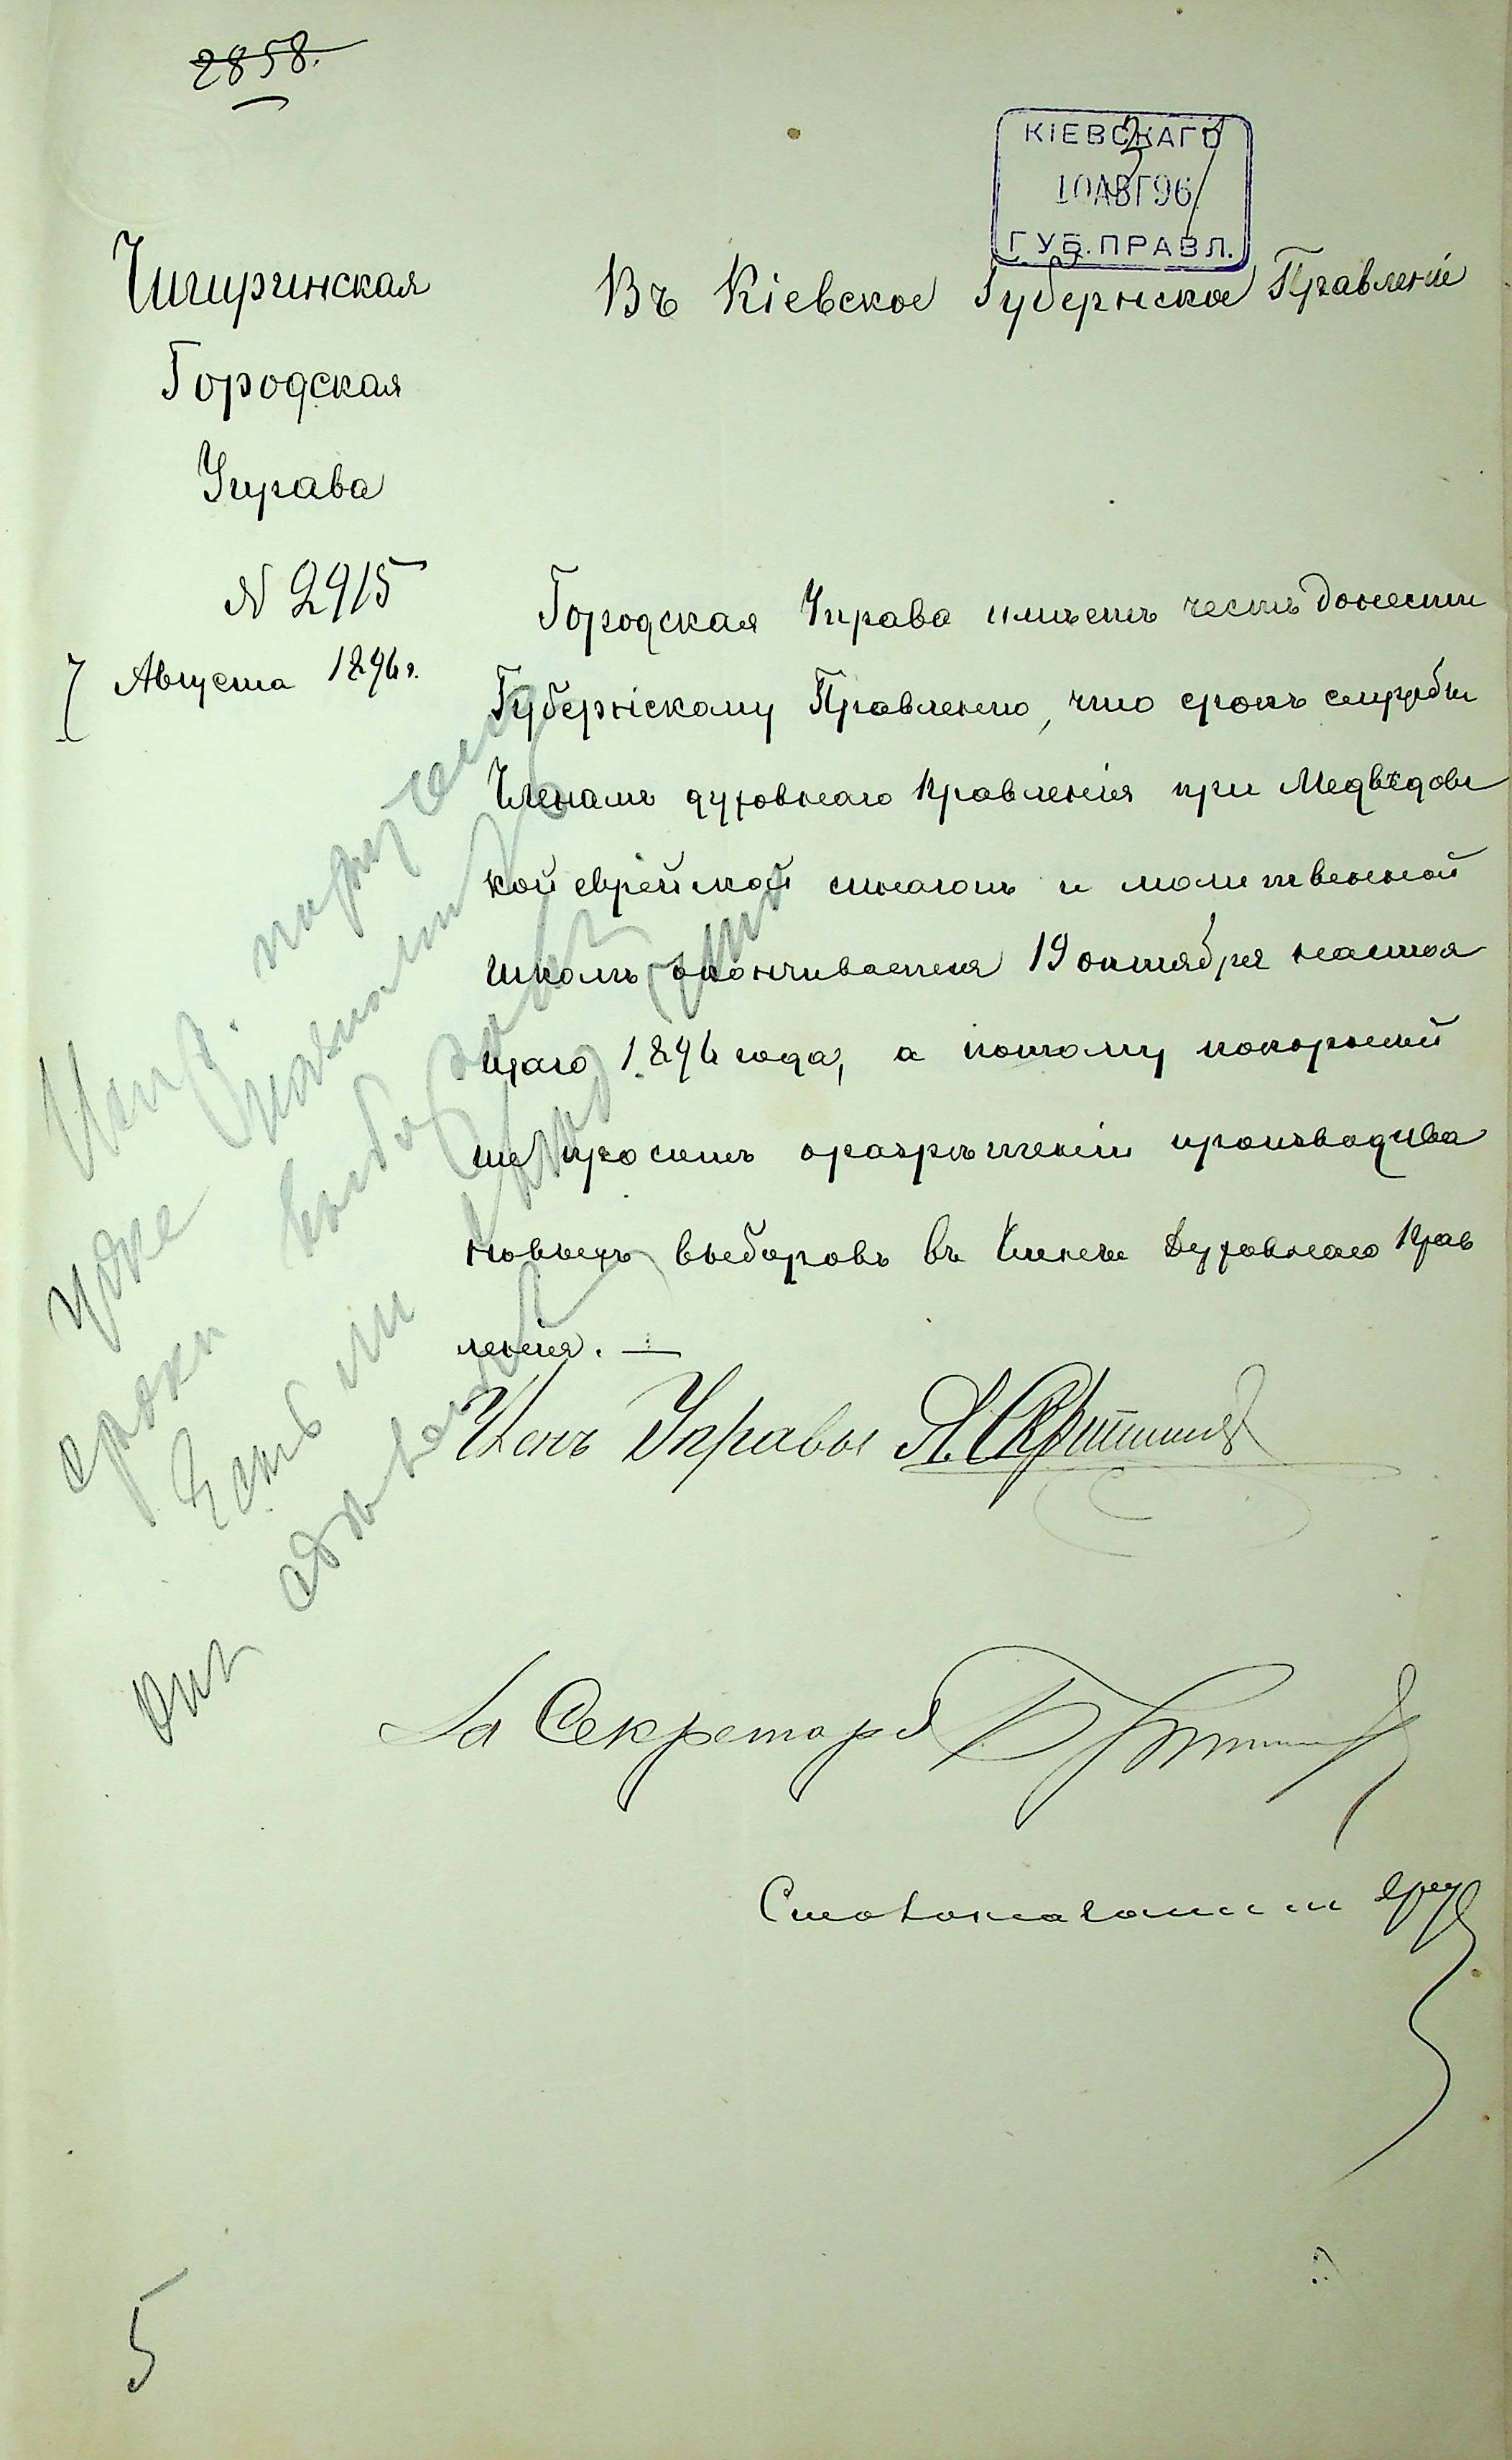 2858.
КІЕВСКАГО
10 АВГ 96
ГУБ. ПРАВЛ.
Чигиринская
Городская
Управа
№ 2915
7 Августа 1896 г.
Въ Кіевское Губернское Правленіе
Городская Управа имѣетъ честь донести
Губернскому Правленію, что срокъ службы
Членамъ духовнаго правленія при Медвѣдовс
кой еврейской синагогѣ и молитвенной
школѣ, оканчивается 19 октября настоя
щаго 1896 года, а потому покорнѣй
ше проситъ о разрѣшеніи производства
новыхъ выборовъ въ Члены Духовнаго Прав
ленія. —
Членъ Управы
За Секретаря
Столоначальникъ
уже
выбор
сроки
Есть ли
5